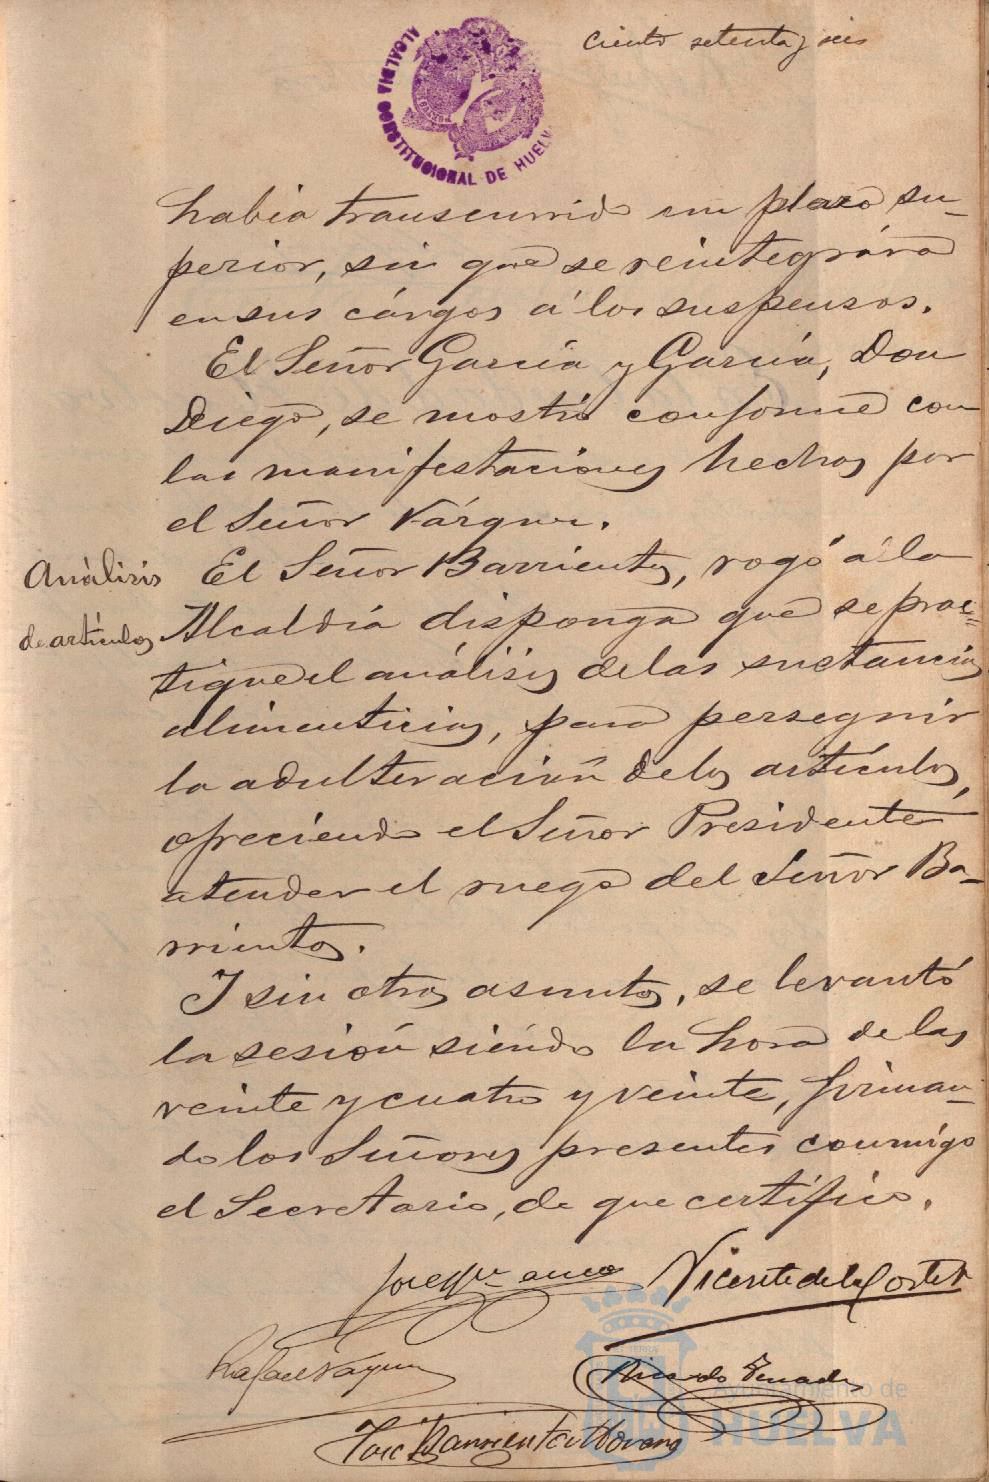 ciento setenta y seis
ALCALDIA CONSTITUCIONAL DE HUELVA
habia transcurrido un plazo su-
perior, sin que se reintegrára
en sus cárgos á los suspensos.
El Señor García y García, Don
Diego, se mostró conforme con
las manifestaciones hechas por
el Señor Várquez.
Análisis
de artículos
El Señor Barrientos, rogó á la
Alcaldía disponga que se prac=
tique el análisis de las sustancias
alimenticias, para perseguir
la adulteración de los artículos,
ofreciendo el Señor Presidente
atender el ruego del Señor Ba-
rrientos.
Y sin otros asuntos, se levantó
la sesión siéndo la hora de las
veinte y cuatro y veinte, firman-
do los Señores presentes conmigo
el Secretario, de que certifico.
Vicente de la Corte
Rafael Vazquez
Ricardo Terrades
José Barrientos Moreno
Ayuntamiento de
HUELVA